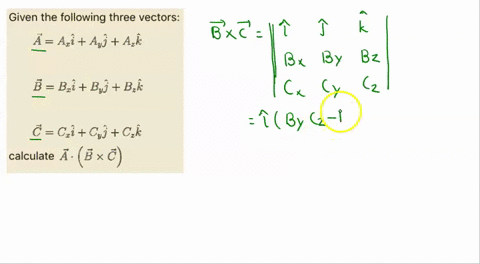 Given the following three vectors:
$\vec{A} = A_x\hat{i} + A_y\hat{j} + A_z\hat{k}$
$\vec{B} = B_x\hat{i} + B_y\hat{j} + B_z\hat{k}$
$\vec{C} = C_x\hat{i} + C_y\hat{j} + C_z\hat{k}$
calculate $\vec{A} \cdot (\vec{B} \times \vec{C})$
$\vec{B} \times \vec{C} = $ | $\hat{i}$ $\hat{j}$ $\hat{k}$ |
| Bx By Bz |
| Cx Cy Cz |
= $\hat{i}$ ( By Cz -